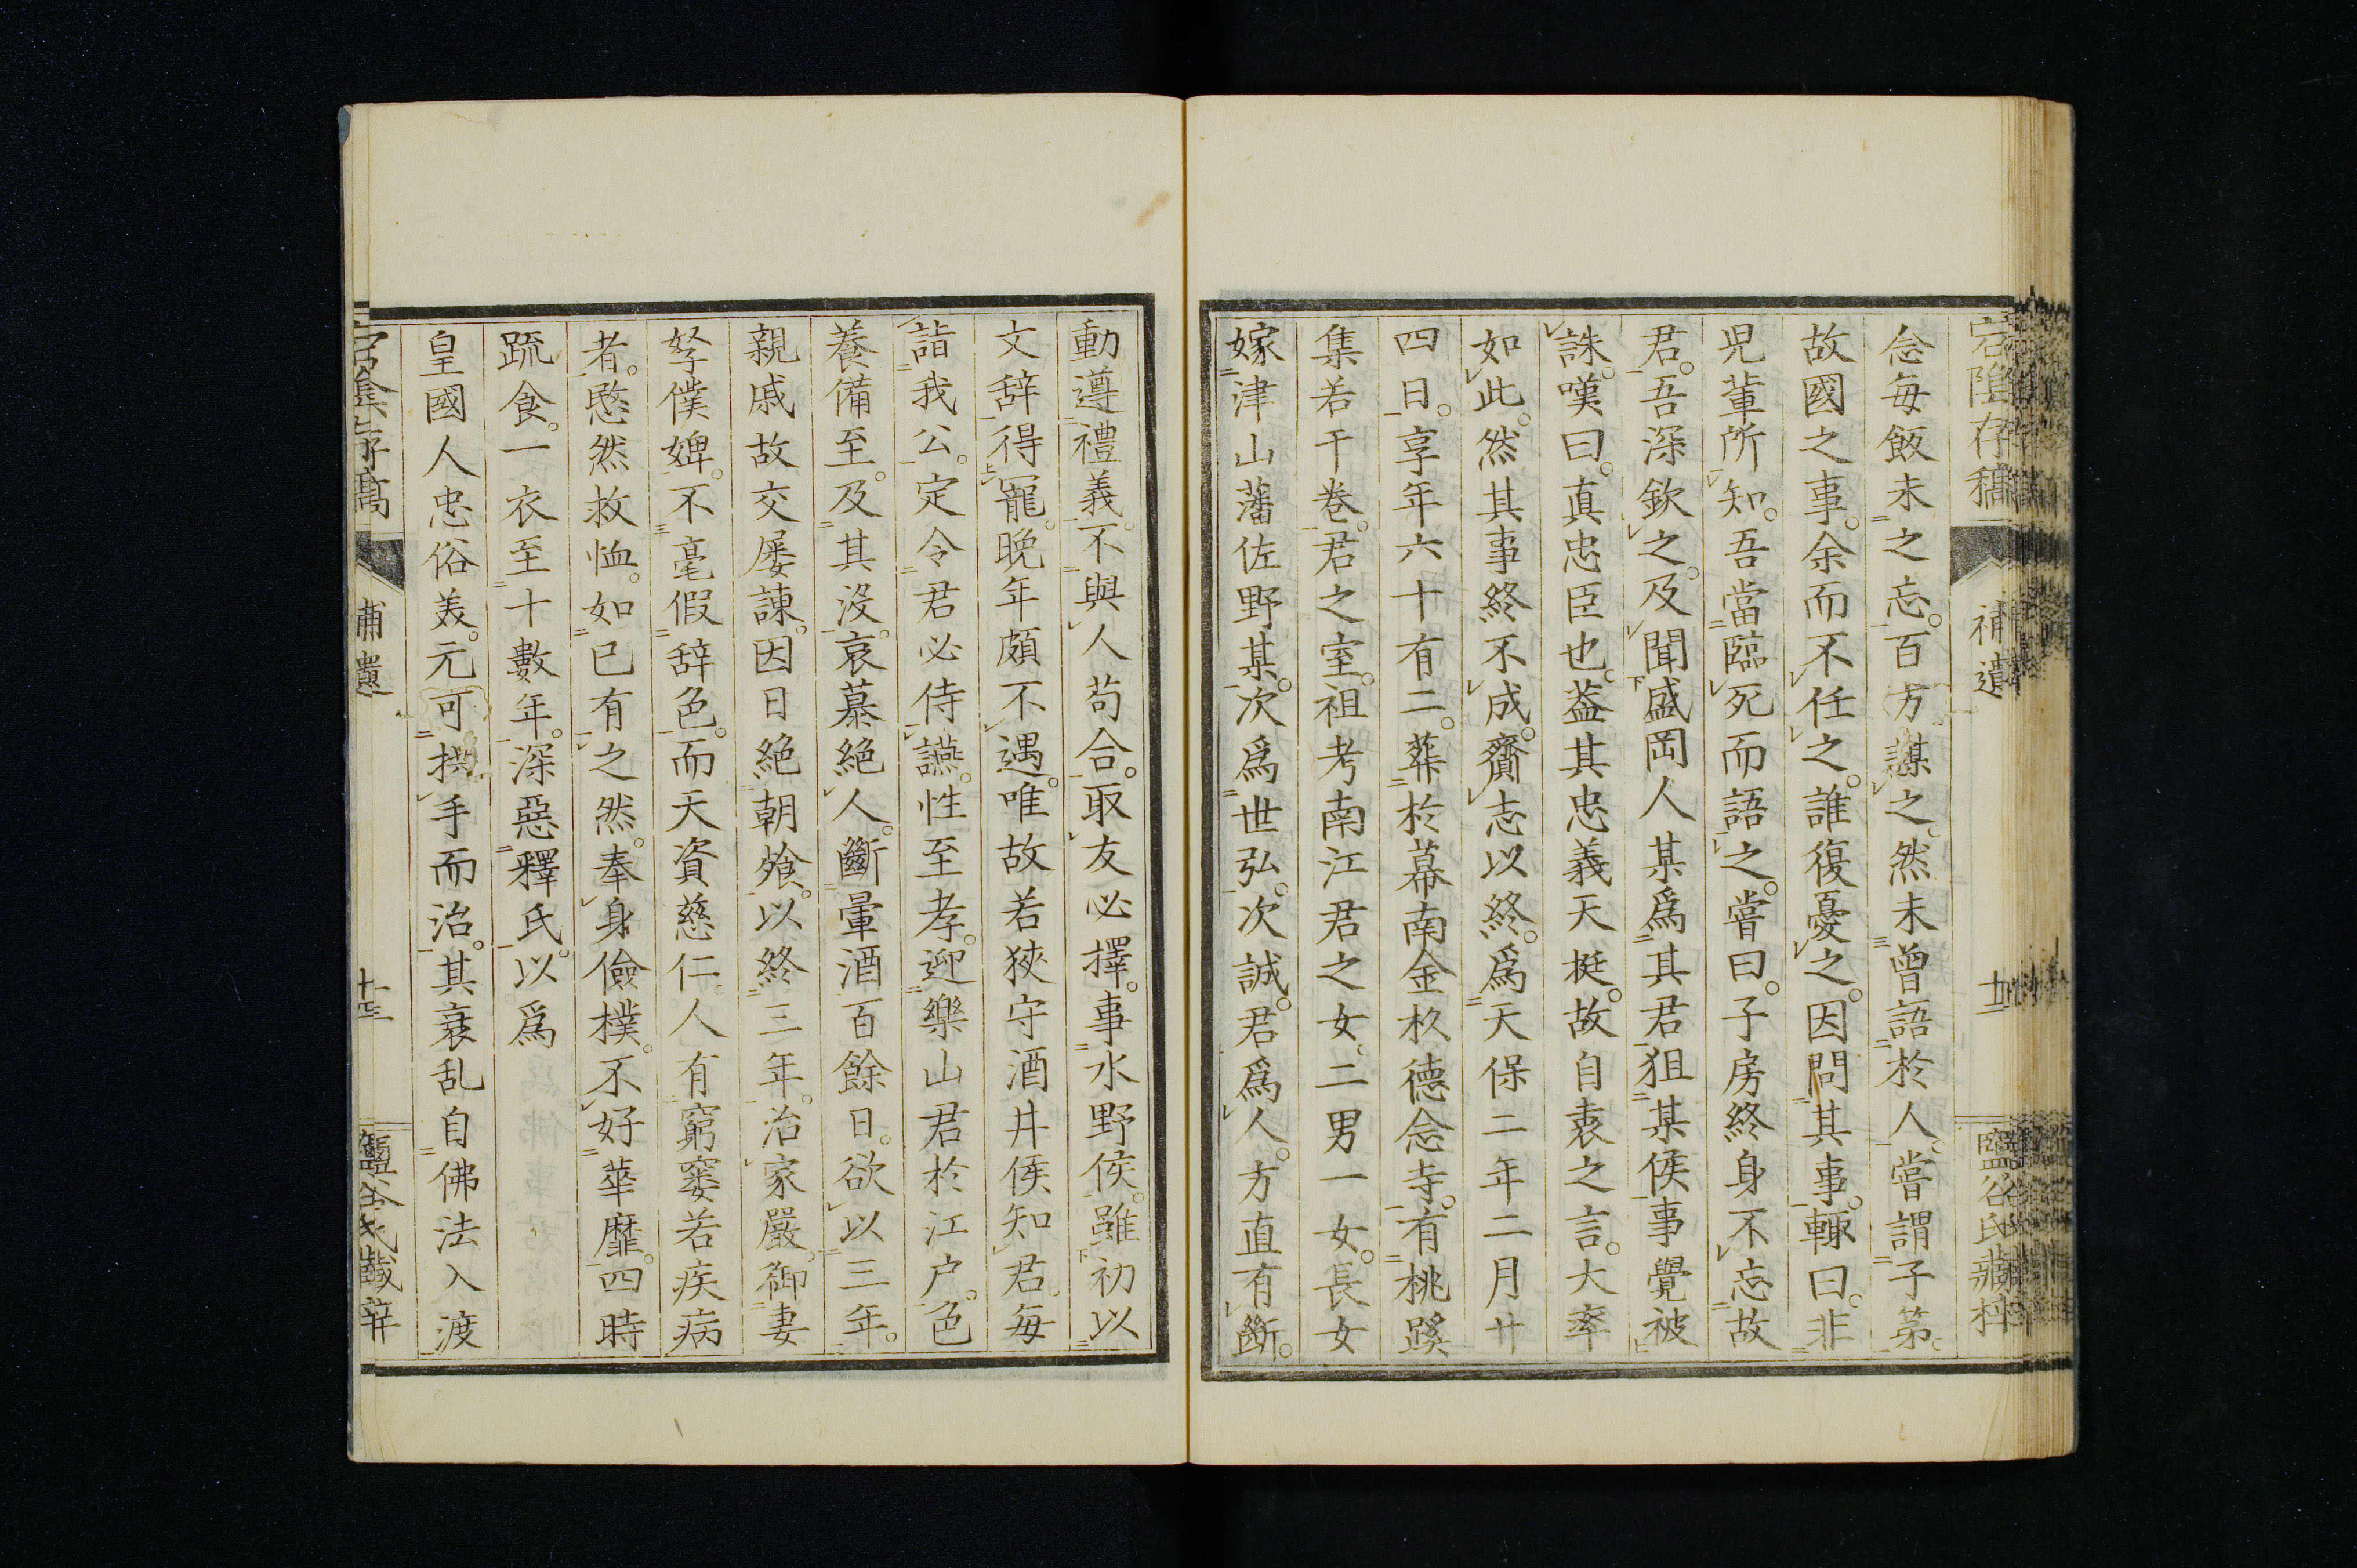 宕陰存稿
補遺
十二
鹽谷氏藏梓
念毎飯未之忘。百方謀之。然未曾語於人。嘗謂子弟。
故國之事。余而不任之。誰復憂之。因問其事。輙曰。非
児輩所知。吾當臨死而語之。嘗曰。子房終身不忘故
君。吾深欽之。及聞盛岡人某爲其君狙某侯事覺被
誅。嘆曰。真忠臣也。葢其忠義天挺。故自衷之言。大率
如此。然其事終不成。齎志以終。爲天保二年二月廿
四日。享年六十有二。葬於幕南金杉德念寺。有桃蹊
集若干卷。君之室。祖考南江君之女。二男一女。長女
嫁津山藩佐野某。次爲世弘。次誠。君爲人。方直有斷。
動遵禮義。不與人苟合。取友必擇。事水野侯。雖初以
文辞得寵。晩年頗不遇。唯故若狹守酒井侯知君。毎
詣我公。定令君必侍讌。性至孝。迎樂山君於江户。色
養備至。及其沒。哀慕絶人。斷葷酒百餘日。欲以三年。
親戚故交屡諌。因日絶朝飧。以終三年。治家嚴。御妻
孥僕婢。不毫假辞色。而天資慈仁。人有窮窭若疾病
者。愍然救恤。如已有之然。奉身儉樸。不好華靡。四時
䟽食。一衣至十數年。深惡釋氏。以爲
皇國人忠俗美。元可拱手而治。其衰乱自佛法入渡
宕陰存稿
補遺
十三
鹽谷氏藏梓